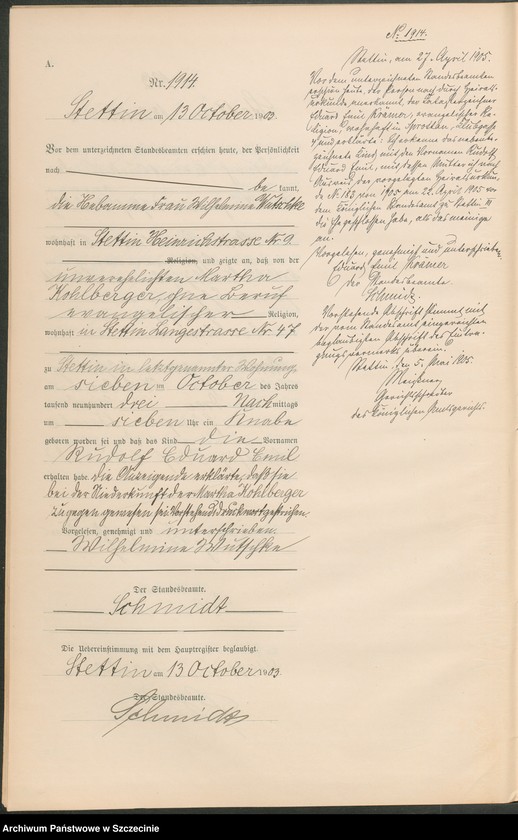 A.
Nr. 1914.
Stettin am 13 October 1903.
Vor dem unterzeichneten Standesbeamten erschien heute, der Persönlichkeit
nach
be kannt,
die Hebamme Frau Wilhelmine Wutschke
wohnhaft in Stettin Heinrichstrasse Nr 9
Religion, und zeigte an, daß von der
unverehelichten Martha
Kohlberger, ohne Beruf
evangelischer Religion,
wohnhaft in Stettin Langestrasse Nr 47
zu Stettin in letztgenannter Wohnung
am sieben ten October des Jahres
tausend neunhundert drei Nach mittags
um sieben Uhr ein Knabe
geboren worden sei und daß das Kind die Vornamen
Rudolf Eduard Emil
erhalten habe. Die Anzeigende erklärte, daß sie
bei der Niederkunft der Martha Kohlberger
zugegen gewesen sei. Vorstehend 1 Druckwort gestrichen.
Vorgelesen, genehmigt und unterschrieben
Wilhelmine Wutschke
Der Standesbeamte.
Schmidt
Die Uebereinstimmung mit dem Hauptregister beglaubigt
Stettin am 13 October 1903.
Der Standesbeamte.
Schmidt
No 1914.
Stettin, am 27. April 1905.
Vor dem unterzeichneten Standesbeamten
erschien heute, der Person nach durch Heirats-
urkunde anerkannt, der
Eduard Emil Krämer, evangelischer Re-
ligion, wohnhaft in
und erklärte: Ich erkenne das neben-
bezeichnete Kind mit den Vornamen Rudolf
Eduard Emil, mit dessen Mutter ich nach
Ausweis der vorgelegten Heiratsurkun-
de No 183 von 1905 am 22. April 1905 vor
dem Königlichen Standesamt zu Stettin III
die Ehe geschlossen habe, als das meinige
an.
Vorgelesen, genehmigt und unterschrieben
Eduard Emil Krämer
Der Standesbeamte.
Schmidt.
Vorstehende Abschrift stimmt mit
der vom Standesamt eingereichten
beglaubigten Abschrift des Eintra-
gungsvermerks überein.
Stettin, den 5. Mai 1905.
Gerichtsschreiber
des Königlichen Amtsgerichts.
Archiwum Państwowe w Szczecinie